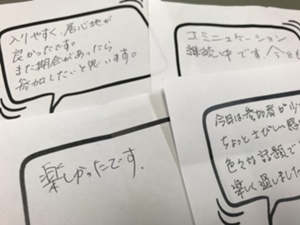 入りやすく、居心地が
良かったです。
また機会があったら
参加したいと思います。
コミュニケーション
雑談中です、今日も
楽しかったです.
今日は参加者が少
ちょっとさびしい
色々な話題で
楽しく過しました